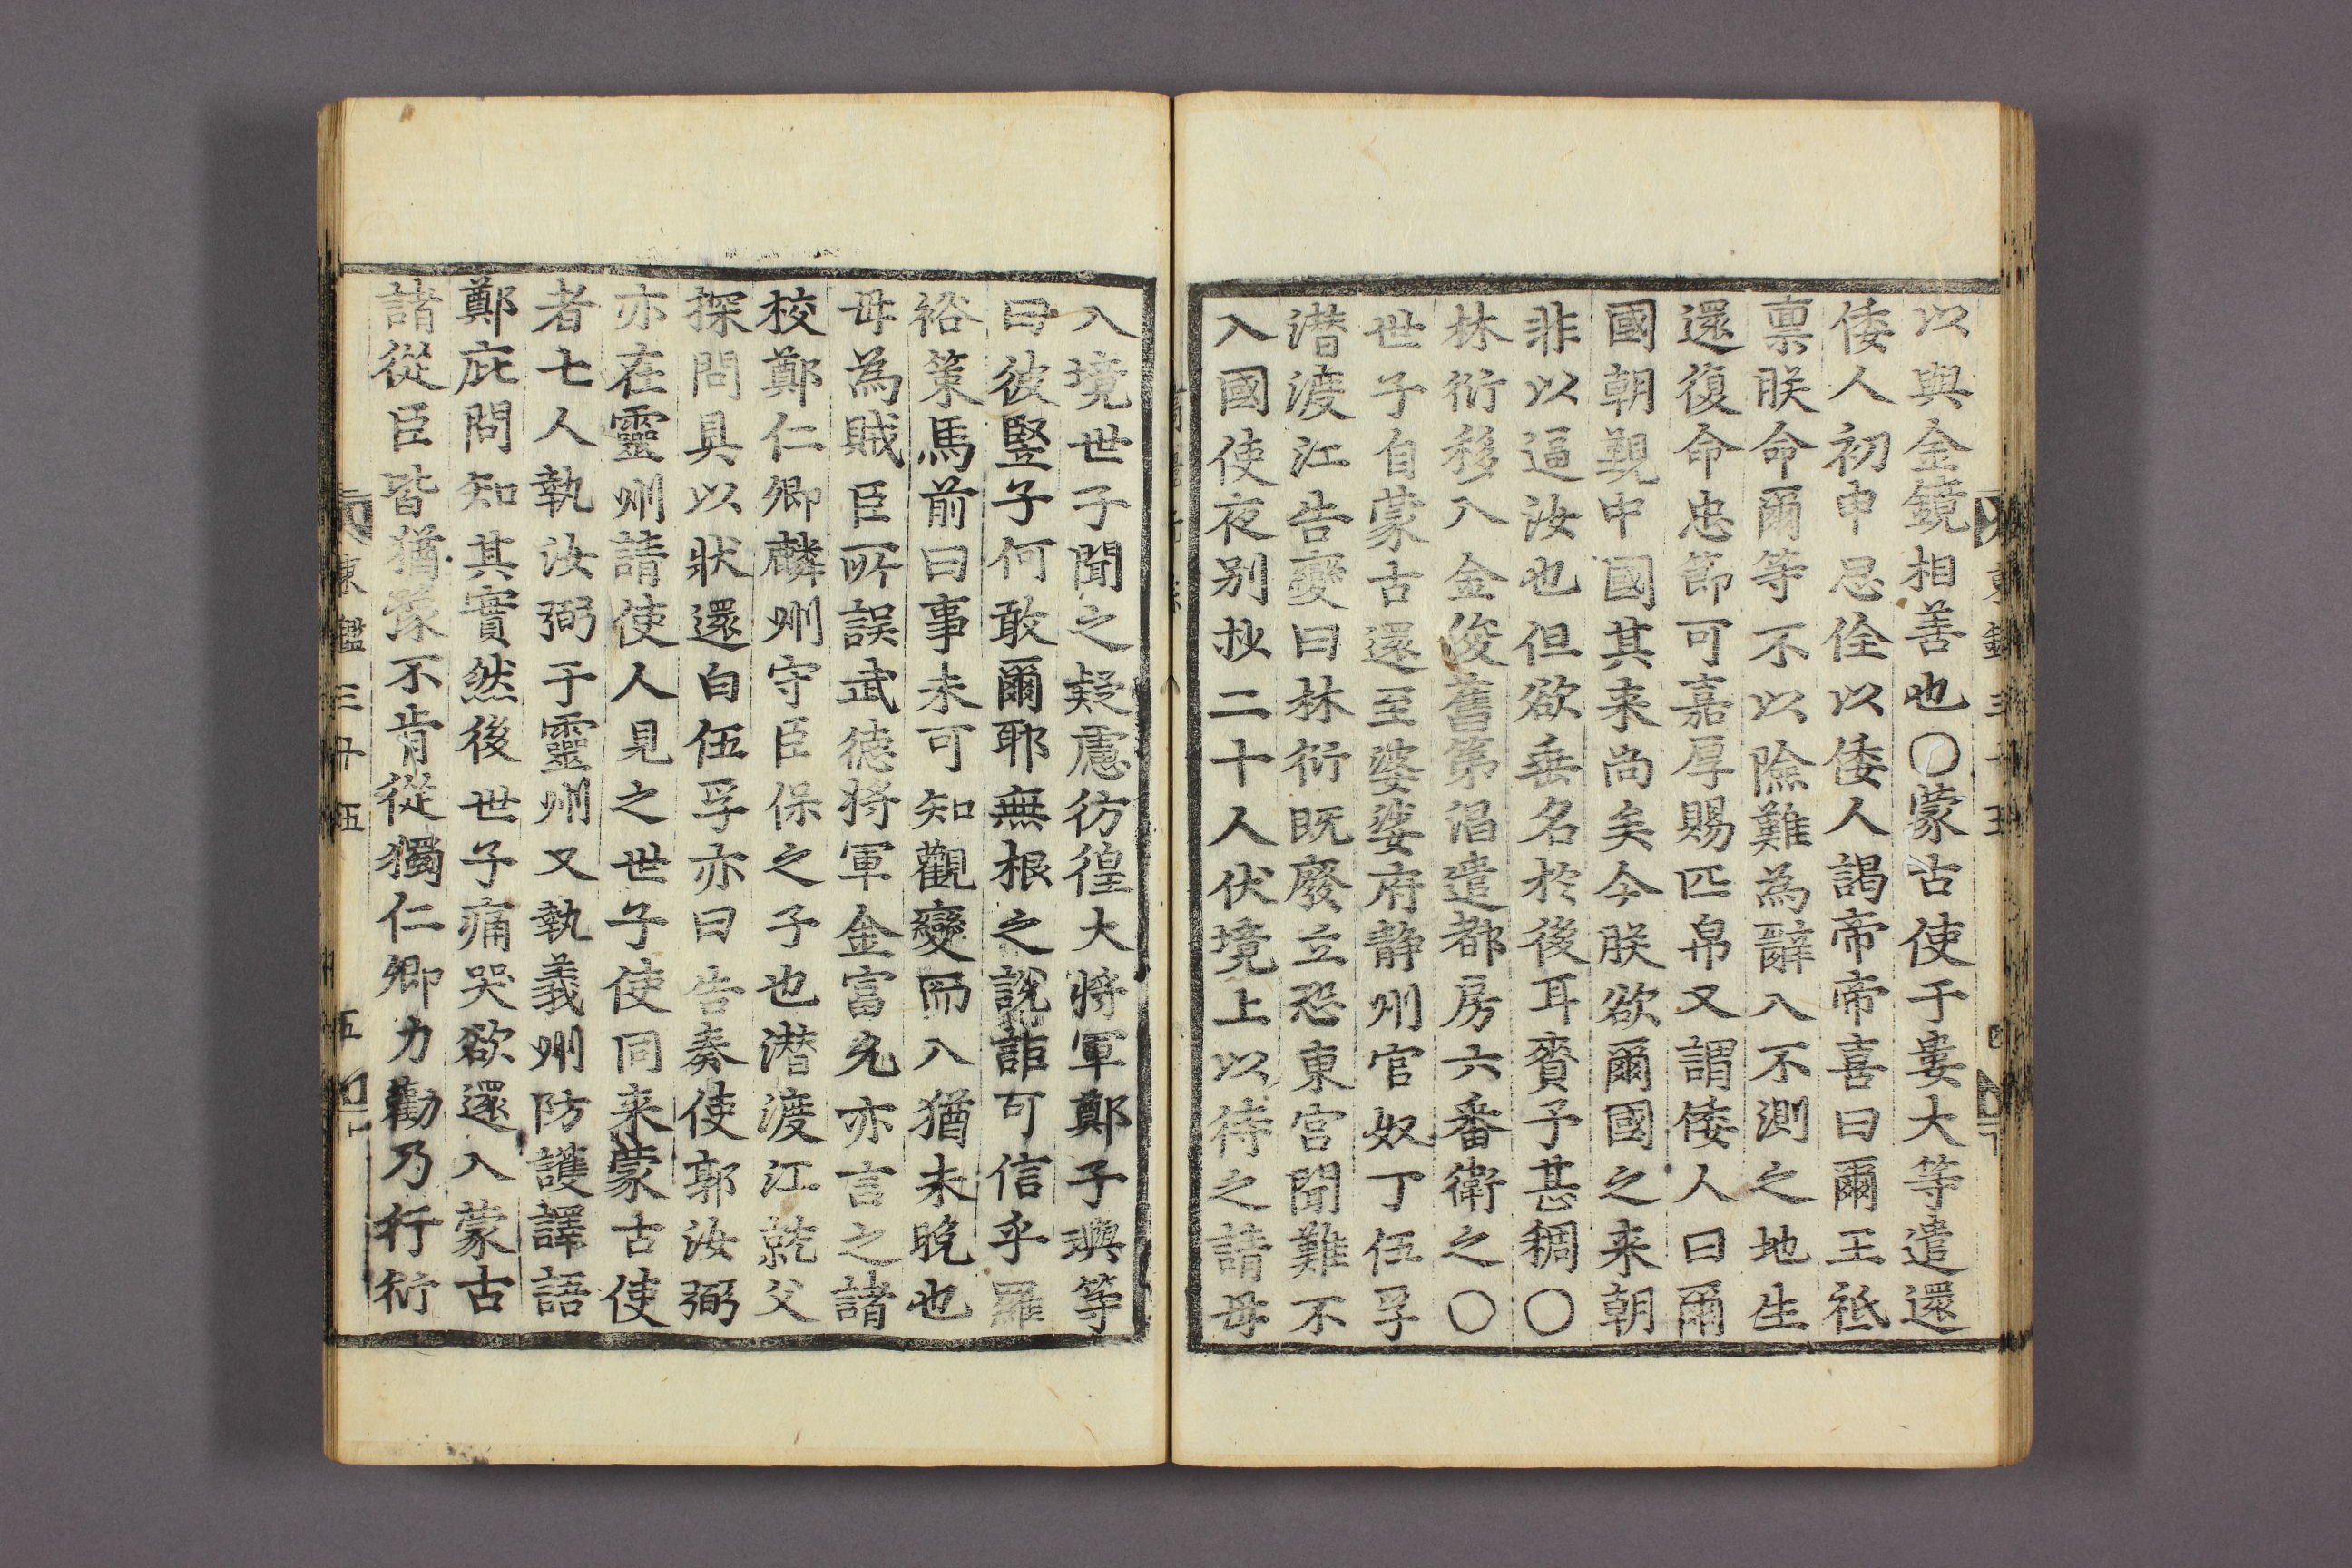 以與金鏡相善也〇蒙古使于婁大等遣還
倭人初申思佺以倭人謁帝帝喜曰爾王祗
禀朕命爾等不以險難為辭入不測之地生
還復命忠節可嘉厚賜匹帛又謂倭人曰爾
國朝覲中國其来尚矣今朕欲爾國之来朝
非以逼汝也但欲垂名於後耳賚予甚稠〇
林衍移入金俊舊第淐遣都房六番衛之〇
世子自蒙古還至婆娑府静州官奴丁伍孚
潜渡江告變曰林衍既廢立恐東宮聞難不
入國使夜别抄二十人伏境上以待之請毋
入境世子聞之疑慮彷徨大將軍鄭子璵等
曰彼竪子何敢爾耶無根之說詎可信乎羅
裕策馬前曰事未可知觀變而入猶未晩也
毋為賊臣所誤武德将軍金富允亦言之諸
校鄭仁卿麟州守臣保之子也潜渡江就父
探問具以狀還白伍孚亦曰告奏使郭汝弼
亦在靈州請使人見之世子使同来蒙古使
者七人執汝弼于靈州又執義州防護譯語
鄭庇問知其實然後世子痛哭欲還入蒙古
諸從臣皆猶豫不肯從獨仁卿力勸乃行衍
東鑑三十五
五